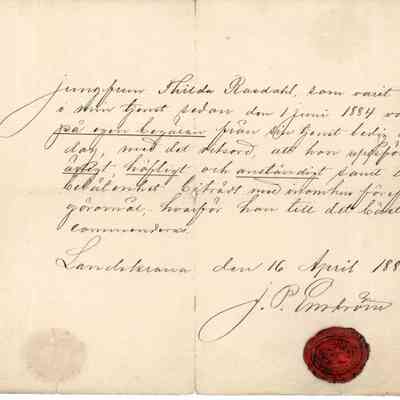 Jungfrun Thilda Rasdahl, som varit
i min tjenst sedan den 1 juni 1884
på egen begäran från den tjenst ledig
dag, med det vitsord, att hon uppfö
ärligt höfligt och anständigt samt
belåtenhet biträdt med inomhusföref
göromål, hvarför hon till det bäst
commenderas.
Landskrona den 16 April 188
J. P. Enström